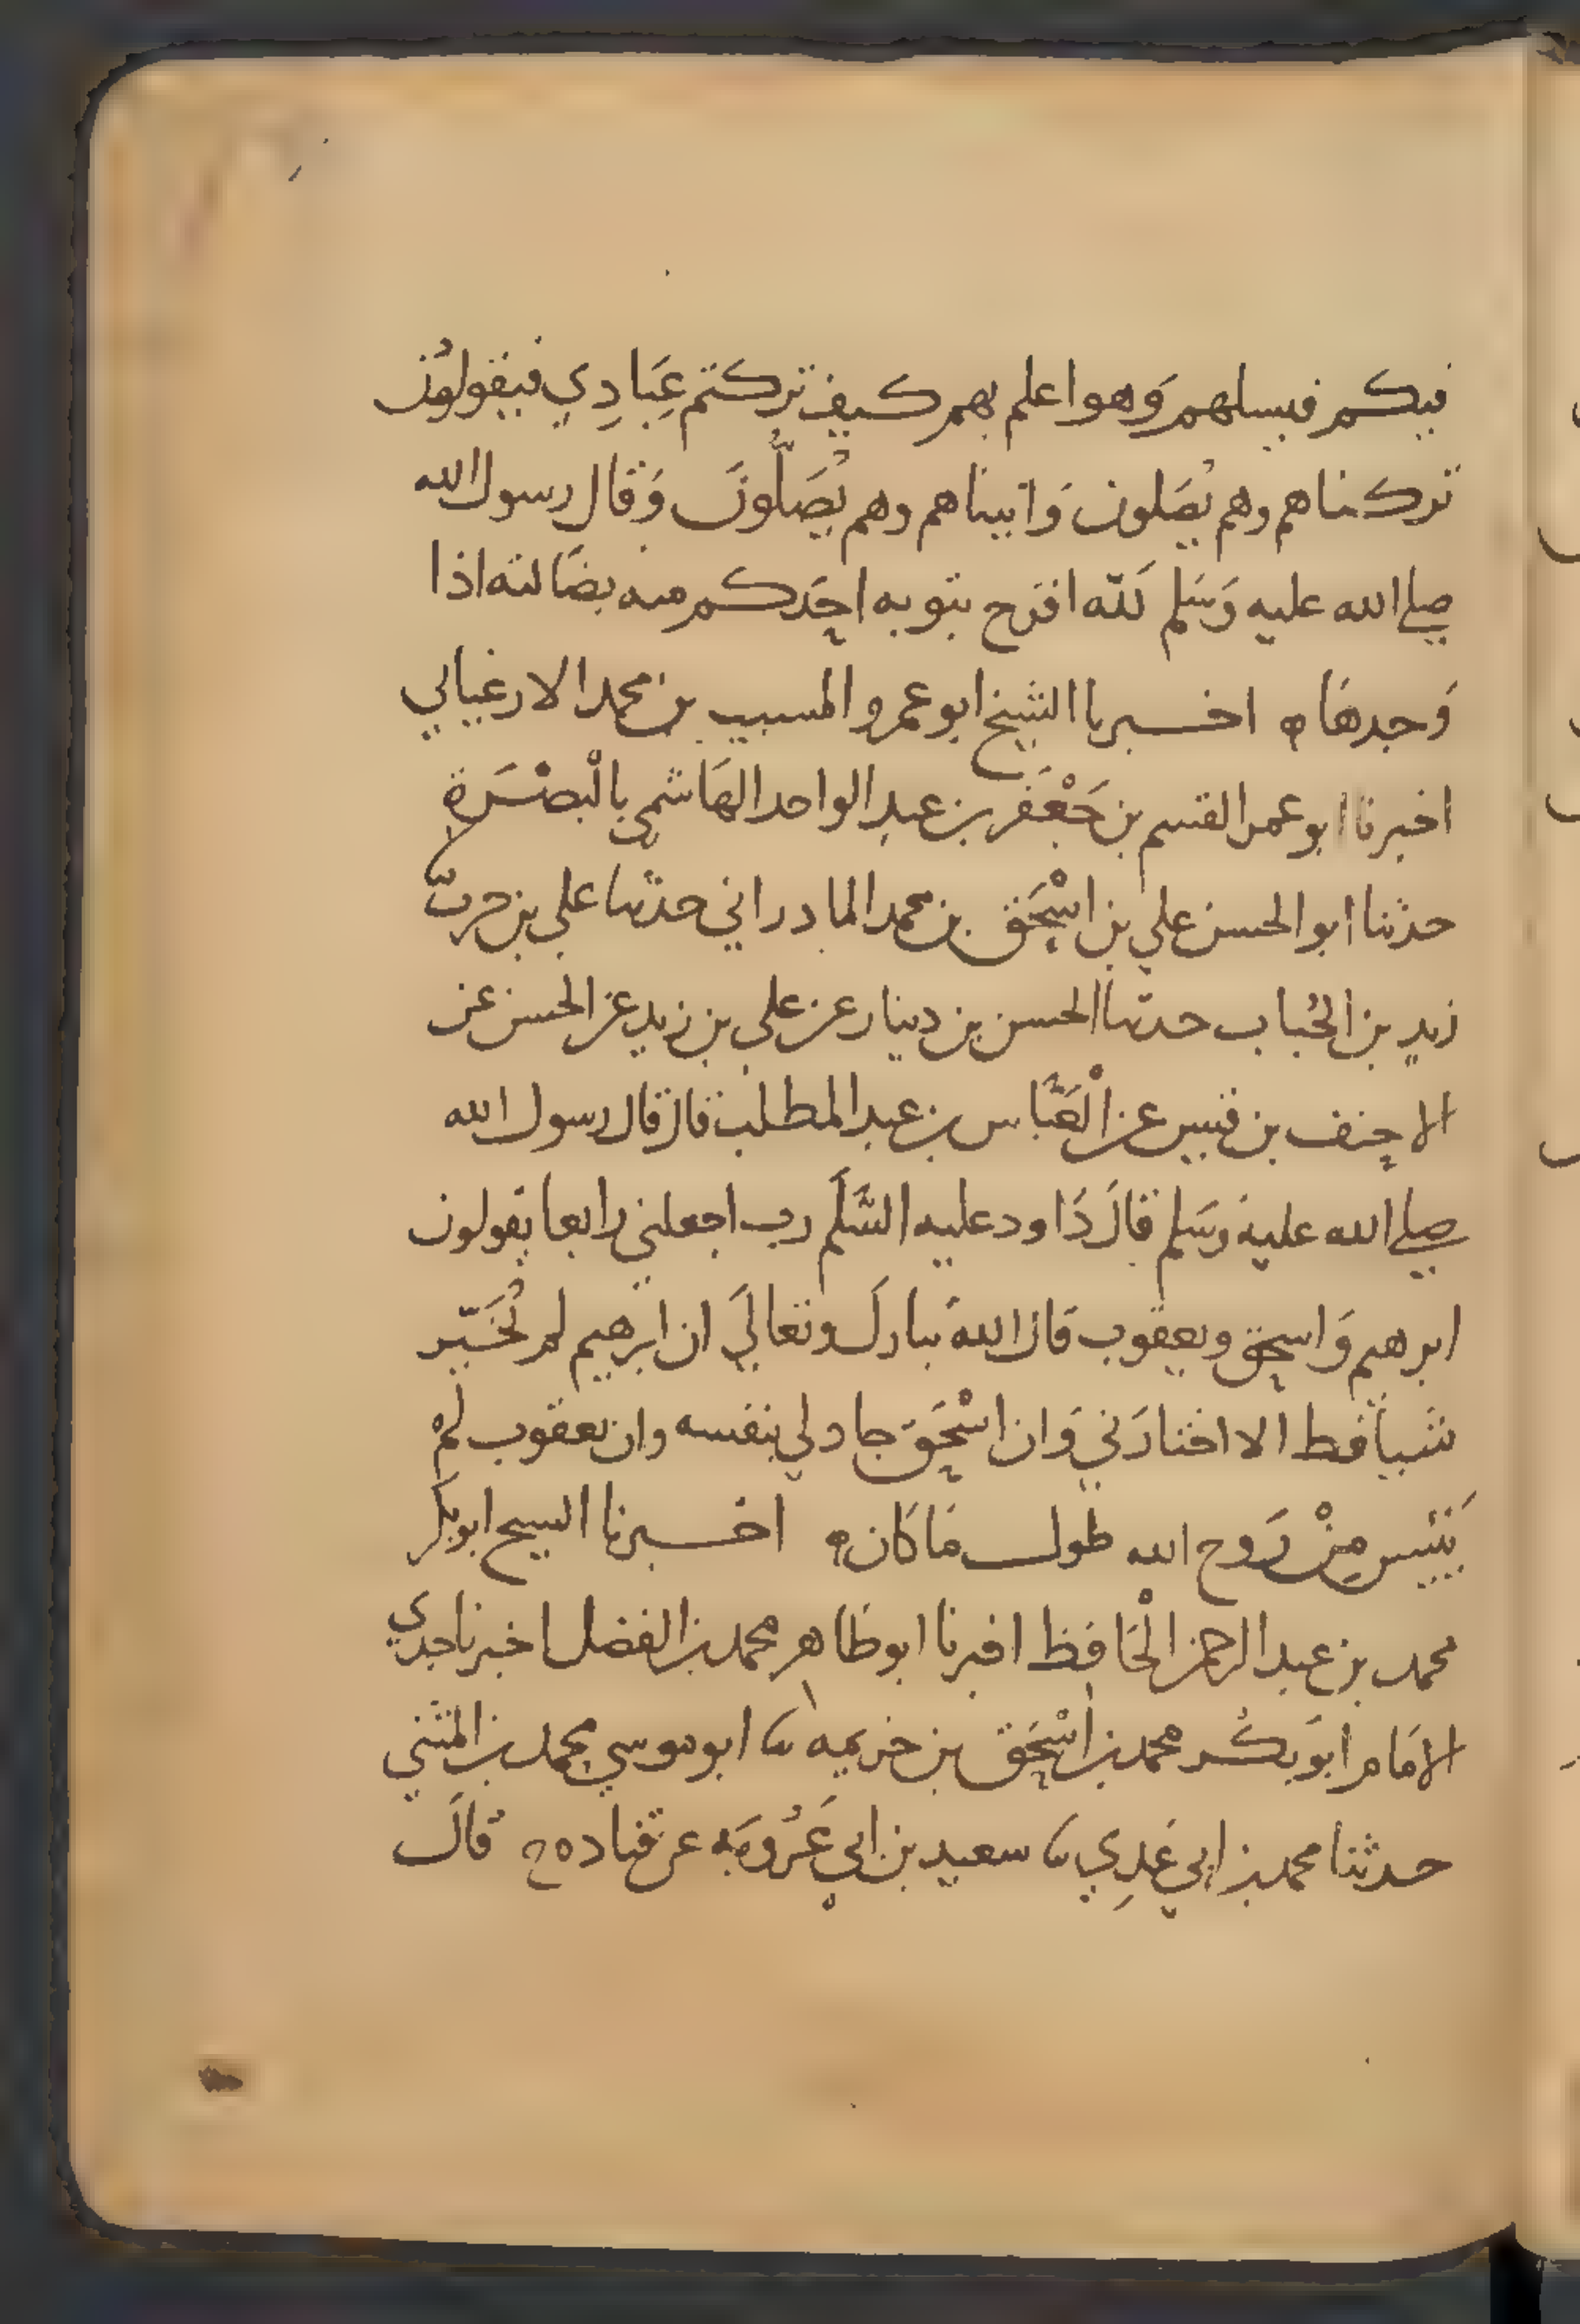 فيكم فيسلهم وَهو اعلم بهم كيف تركتم عِبَادِي فيقولون
تركناهم وهم يُصَلون وَاتيناهم وهم يُصَلُّونَ وَقال رسول الله
صلى الله عليه وَسَلم لَلّه افرَح بتوبه احَدكم منه بضَالته اذا
وَجدهَا ه اخبرنا الشيخ ابو عمرو المسيب بن محمد الارغياني
اخبرنا ابو عمر القسم بن جَعْفَر بن عبدِ الواحد الهَاشمي بالْبصْرَةِ
حدثنا ابو الحسن علي بن اسْحَق بن محمد المادراني حدثنا علي بن حرب
زيدِ بن الحُباب حدثنا الحسن بن دينار عن علي بن زيدِ عن الحسن عن
الاحنف بن قيس عن الْعَبَّاس بن عبد المطلب قال قال رسول الله
صلى الله عليه وسَلم قالَ دَاود عليه السَّلَم رب اجعلني رابعا يَقولون
ابرهيم وَاسحق ويعقوب قال اللهَ تبارَك وتعالَي ان ابرهيم لم يُخَيَّر
شَيأ قط الا اختارَني وَان اسْحَقَ جاد لي بنفسه وان يعقوب لم
يَيئس مِنْ رَوح الله طول مَا كَان ه اخبرنا الشيخ ابو بكر
محمد بن عبد الرحمن الْحَافظ اخبرنا ابو طَاهر محمد بن الفضل اخبرنا جدي
الامَام ابوَ بكْر محمد بن اسْحَق بن خزيمه ثنا ابو موسي محمد بن المثني
حدثنا محمد بن ابي عَدِي ثنا سعيد بن ابي عَرُوبَه عن قتاده قالَ